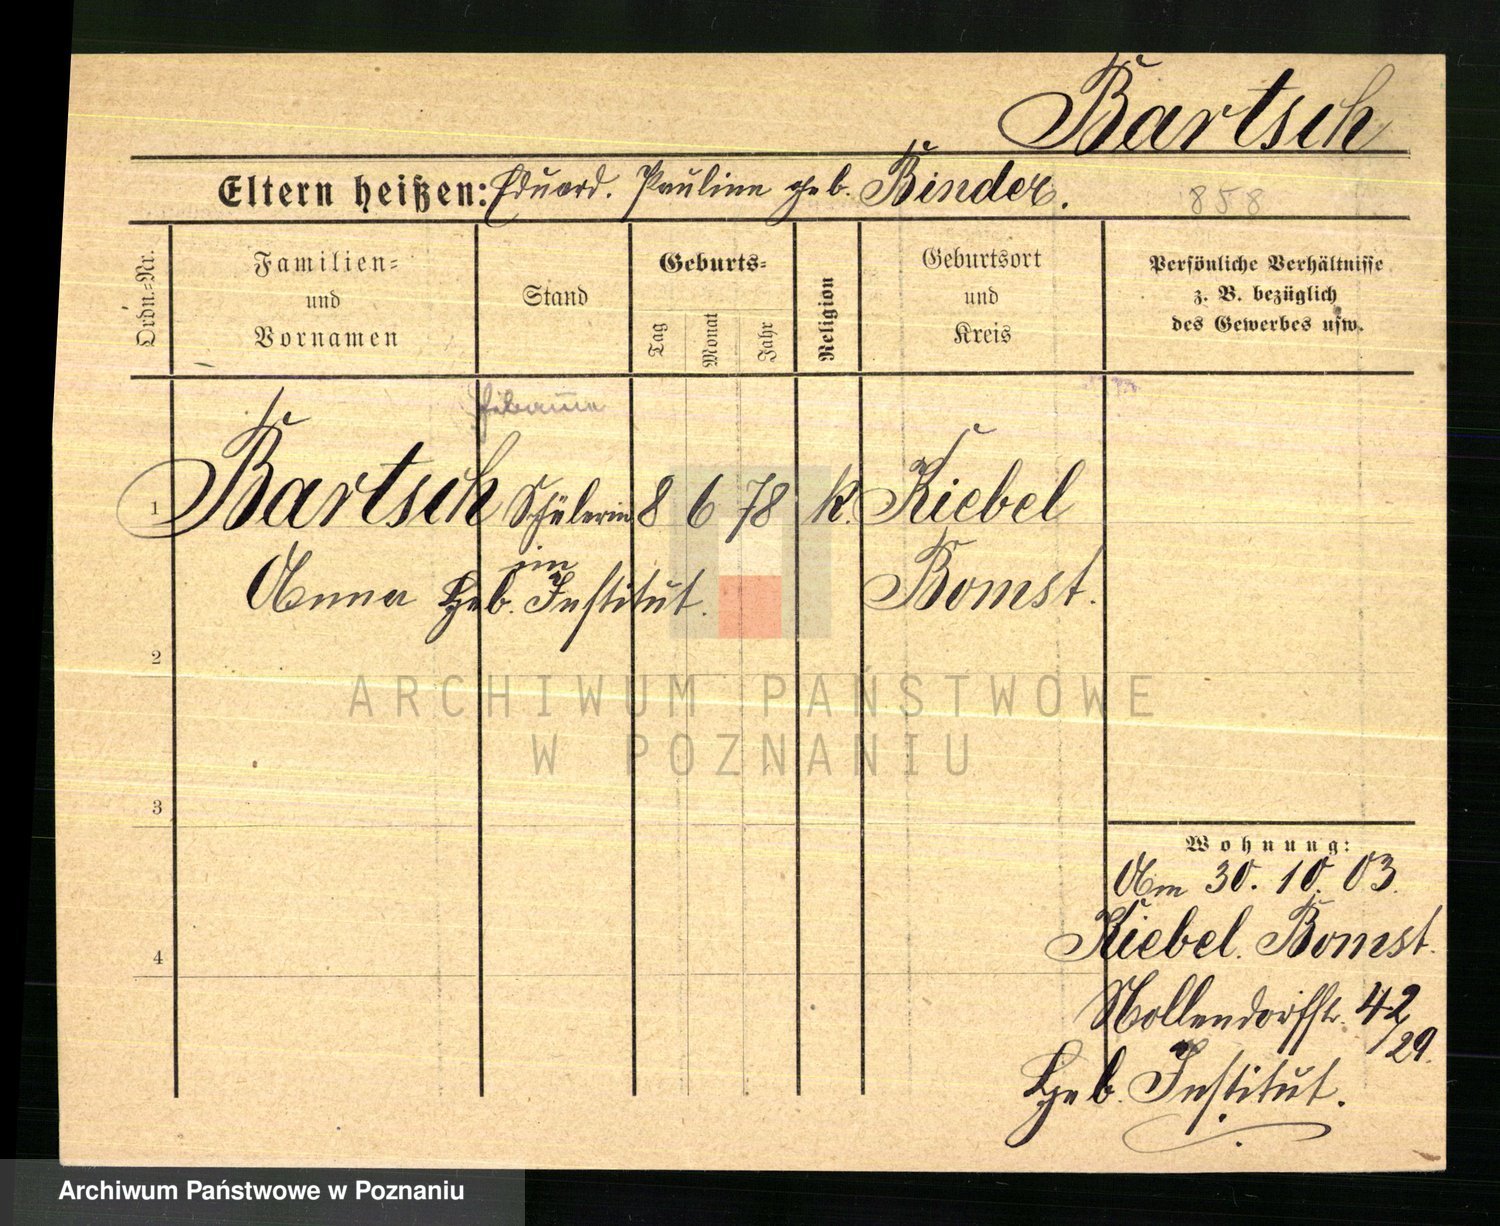 Bartsch
Eltern heißen: Eduard. Pauline geb. Binder.
858
Ordn.-Nr.
Familien-
und
Vornamen
Stand
Geburts-
Tag
Monat
Jahr
Religion
Geburtsort
und
Kreis
Persönliche Verhältnisse
z. B. bezüglich
des Gewerbes usw.
Hebamme
1 Bartsch Schülerin 8 6 78 k. Kiebel
im
Anna Heb. Institut. Bomst.
2
3
4
Wohnung:
Am 30. 10. 03.
Kiebel. Bomst.
Nollendorfstr. 42/29.
Heb. Institut.
ARCHIWUM PAŃSTWOWE
W POZNANIU
Archiwum Państwowe w Poznaniu